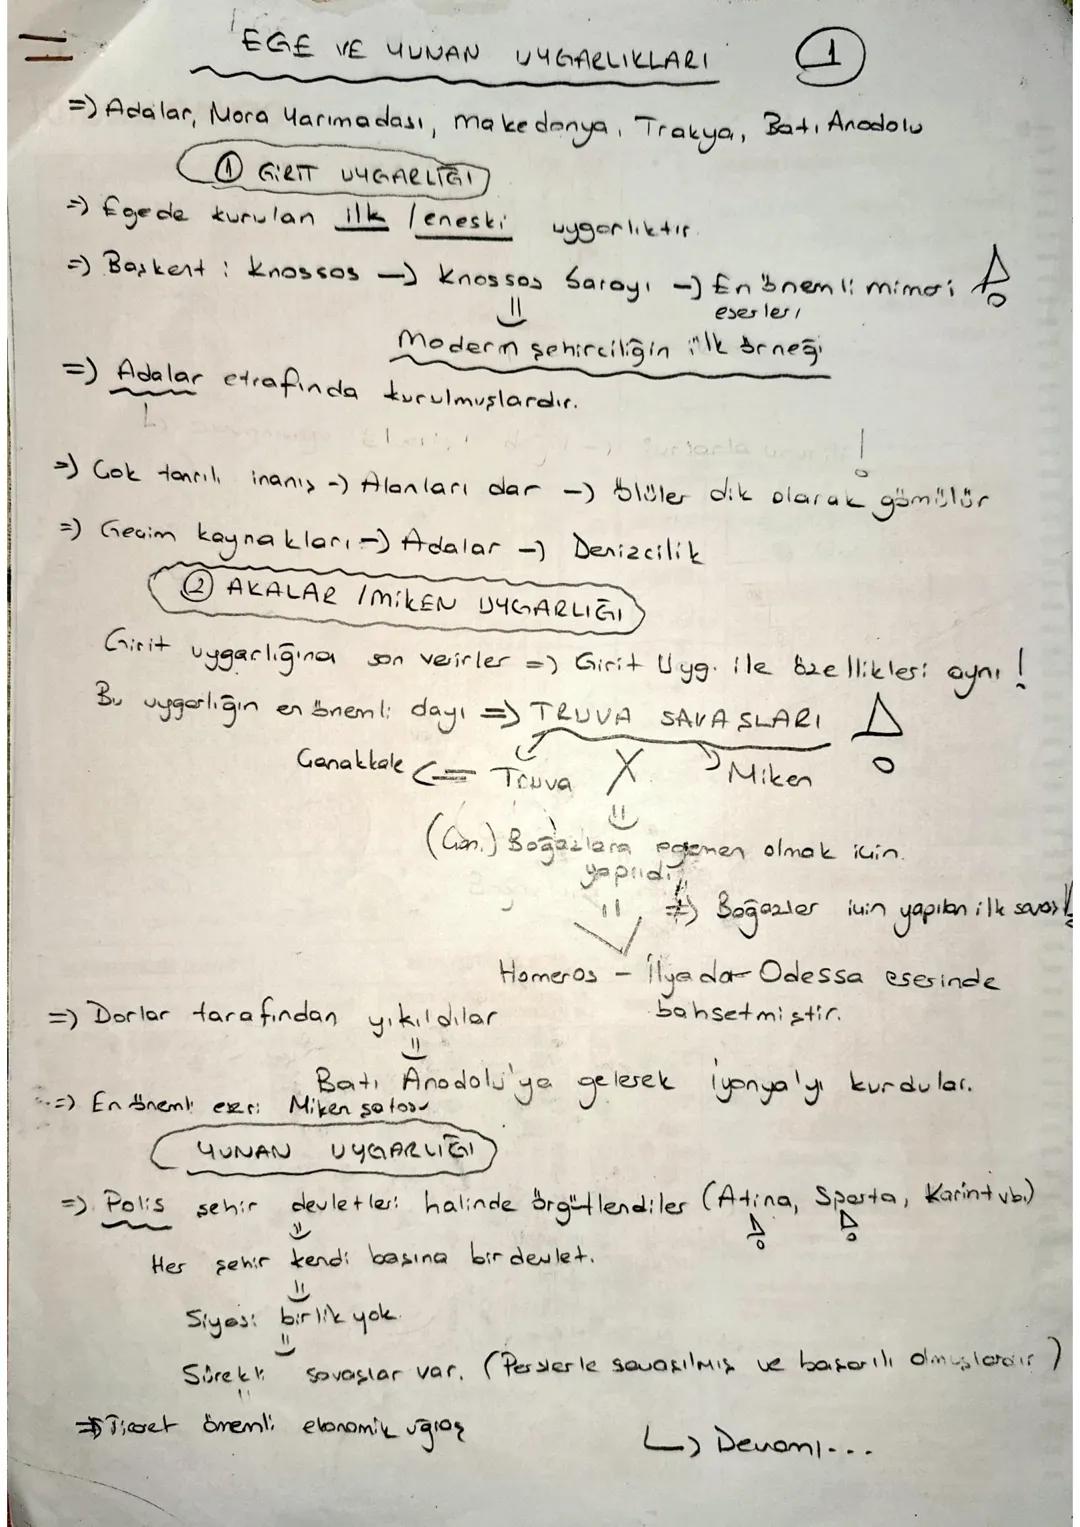 EGE VE YUNAN UYGARLIKLARI 1
=) Adalar, Mora Yarımadası, makedonya, Trakya, Batı Anadolu
① GİRİT UYGARLIĞI
=) Egede kurulan ilk / en eski uygarlıktır.
=) Başkent : Knossos -> Knossos Sarayı -> En önemli mimari
eserleri
Modern şehirciliğin ilk örneği
=) Adalar etrafında kurulmuşlardır.
=) Çok tanrılı inanış -> Alanları dar -> Ölüler dik olarak gömülür
=) Geçim kaynakları -> Adalar -> Denizcilik
② AKALAR / MİKEN UYGARLIĞI
Girit uygarlığına son verirler => Girit Uyg. ile özellikleri aynı !
Bu uygarlığın en önemli dayı => TRUVA SAVAŞLARI
Çanakkale <= Truva X Miken
(Çan.) Boğazlara egemen olmak için
yapıldı
=> Boğazlar için yapılan ilk savaş!
Homeros - İlyada Odessa eserinde
bahsetmiştir.
=) Dorlar tarafından yıkıldılar
Batı Anadolu'ya gelerek İyonya'yı kurdular.
=) En önemli eseri Miken şatosu
YUNAN UYGARLIĞI
=) Polis şehir devletleri halinde örgütlendiler (Atina, Sparta, Karint vb.)
Her şehir kendi başına bir devlet.
Siyasi birlik yok.
Sürekli savaşlar var. (Perslerle savaşılmış ve başarılı olmuşlardır)
=> Ticaret önemli ekonomik uğraş
↳ Devamı...